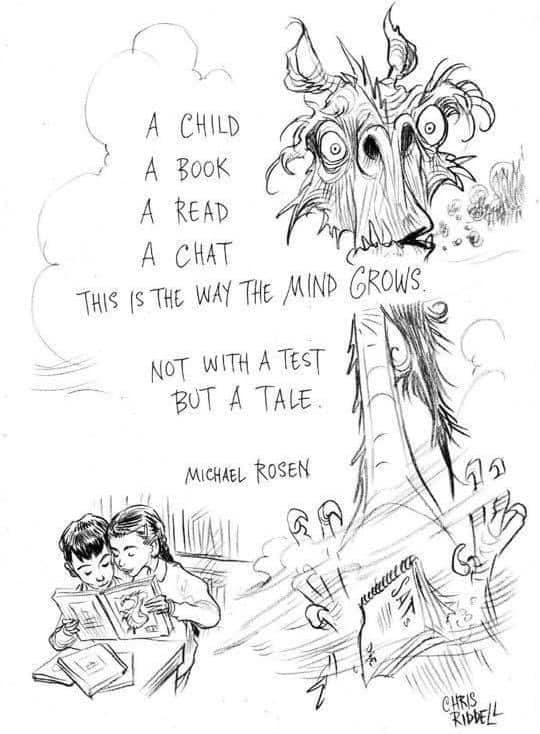 A CHILD
A BOOK
A READ
A CHAT
THIS IS THE WAY THE MIND GROWS.
NOT WITH A TEST
BUT A TALE.
MICHAEL ROSEN
SATs
CHRIS
RIDDELL